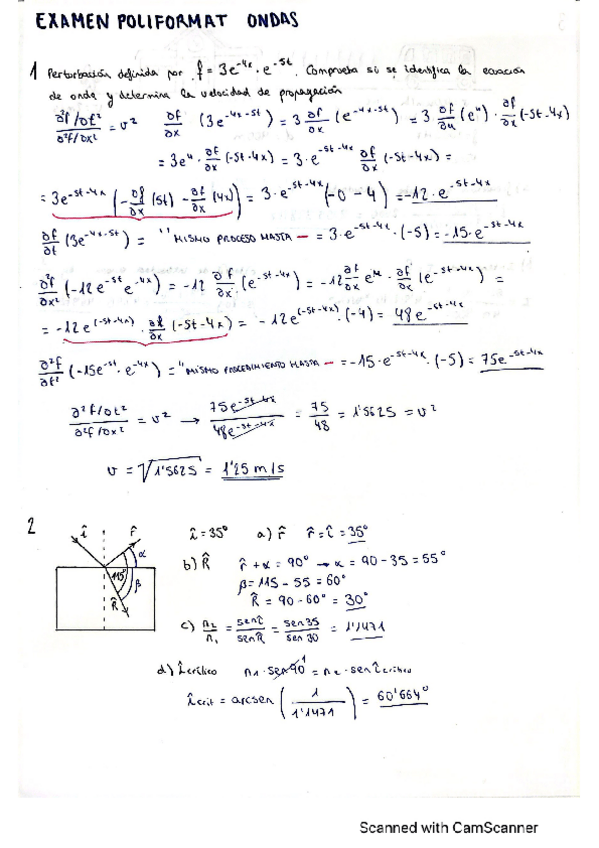 EXAMEN POLIFORMAT ONDAS
1 Perturbación definida por f = 3e^-4x · e^-5t. Comprueba si se identifica la ecuación
de onda y determina la velocidad de propagación
∂²f/∂t² / ∂²f/∂x² = v² ∂f/∂x (3e^-4x-5t) = 3 ∂f/∂x (e^-4x-5t) = 3 ∂f/∂u (e^u) · ∂f/∂x (-5t-4x)
= 3e^u · ∂f/∂x (-5t-4x) = 3·e^-5t-4x ∂f/∂x (-5t-4x) =
= 3e^-5t-4x (-∂f/∂x (5t) - ∂f/∂x (4x)) = 3·e^-5t-4x (-0-4) = -12·e^-5t-4x
∂f/∂t (3e^-4x-5t) = "MISMO PROCESO HASTA — = 3·e^-5t-4x · (-5) = -15·e^-5t-4x
∂²f/∂x² (-12e^-5t e^-4x) = -12 ∂f/∂x (e^-5t-4x) = -12 ∂f/∂x e^u · ∂f/∂x (e^-5t-4x) =
= -12e^(-5t-4x) · ∂f/∂x (-5t-4x) = -12e^(-5t-4x) · (-4) = 48e^-5t-4x
∂²f/∂t² (-15e^-5t · e^-4x) = "MISMO PROCEDIMIENTO HASTA — = -15·e^-5t-4x · (-5) = 75e^-5t-4x
∂²f/∂t² / ∂²f/∂x² = v² → 75e^-5t-4x / 48e^-5t-4x = 75/48 = 1'5625 = v²
v = √1'5625 = 1'25 m/s
2
î r̂ α 115° β R̂
î = 35° a) r̂ r̂ = î = 35°
b) R̂ r̂ + α = 90° → α = 90-35 = 55°
β = 115 - 55 = 60°
R̂ = 90-60° = 30°
c) n2/n1 = sen î / sen R̂ = sen 35 / sen 30 = 1'1471
d) î crítico n1 · sen 90 1 = n2 · sen î crítico
î crit = arcsen (1 / 1'1471) = 60'664°
Scanned with CamScanner